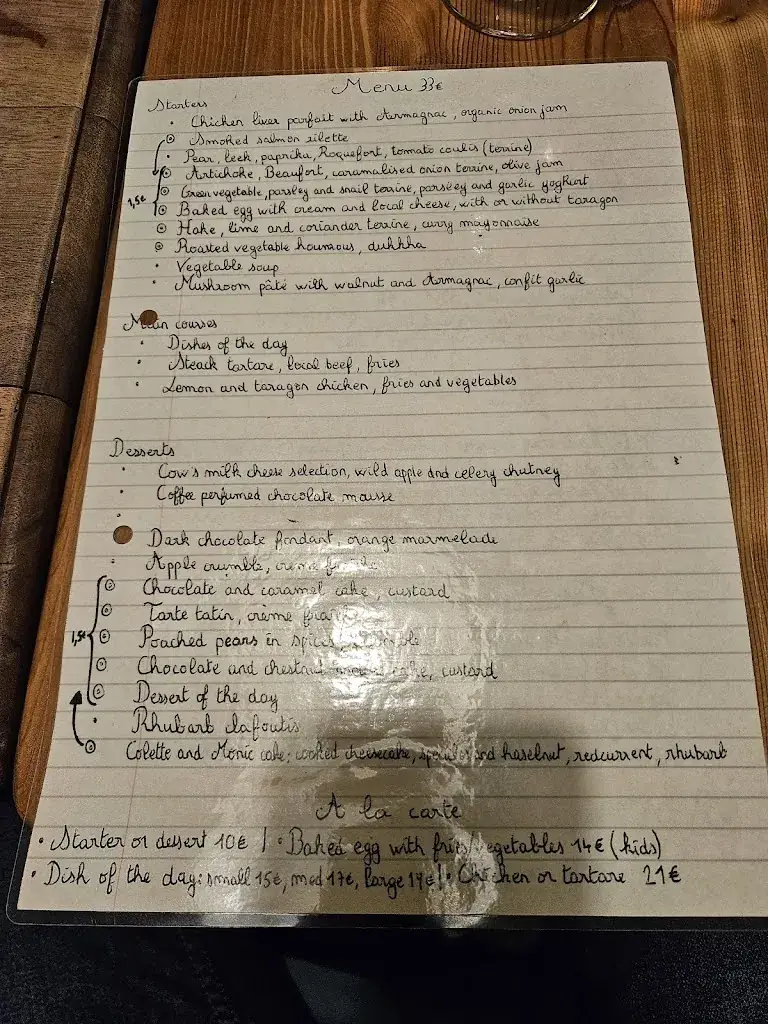 Menu 33€
Starters
• Chicken liver parfait with Armagnac, organic onion jam
Smoked salmon rilette
• Pear, leek, paprika, Roquefort, tomato coulis (terrine)
Artichoke, Beaufort, caramalised onion terrine, olive jam
Green vegetable, parsley and snail terrine, parsley and garlic yoghurt
1,5€
Baked egg with cream and local cheese, with or without taragon
Hake, lime and coriander terrine, curry mayonnaise
Roasted vegetable houmous, dukhha
• Vegetable soup
• Mushroom pâté with walnut and Armagnac, confit garlic
Main courses
• Dishes of the day
• Steack tartare, local beef, fries
• Lemon and taragon chicken, fries and vegetables
Desserts
• Cow's milk cheese selection, wild apple and celery chutney
• Coffee perfumed chocolate mousse
Dark chocolate fondant, orange marmelade
Apple crumble, crème
Chocolate and caramel cake, custard
Tarte tatin, crème
1,5€
Poached pears in spices,
Chocolate and chestnut cake, custard
Dessert of the day
• Rhubarb clafoutis
Colette and Monic cake: cooked cheesecake, and haselnut, redcurrent, rhubarb
A la carte
• Starter or dessert 10€ / • Baked egg with fries/vegetables 14€ (kids)
• Dish of the day: small 15€, med 17€, large 19€ / • Chicken or tartare 21€